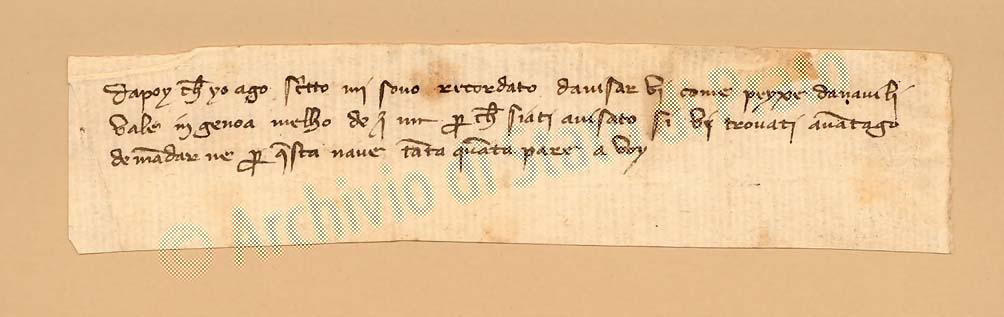 dapoy ch yo ago scrito mi sono recordato davisar vi come peyxe da navili
vale in genoa melho de
per ch siati avisato si vi trovati avantago
de mandar ne per questa nave tanta quanta pare a voy
© Archivio di Stato di Prato